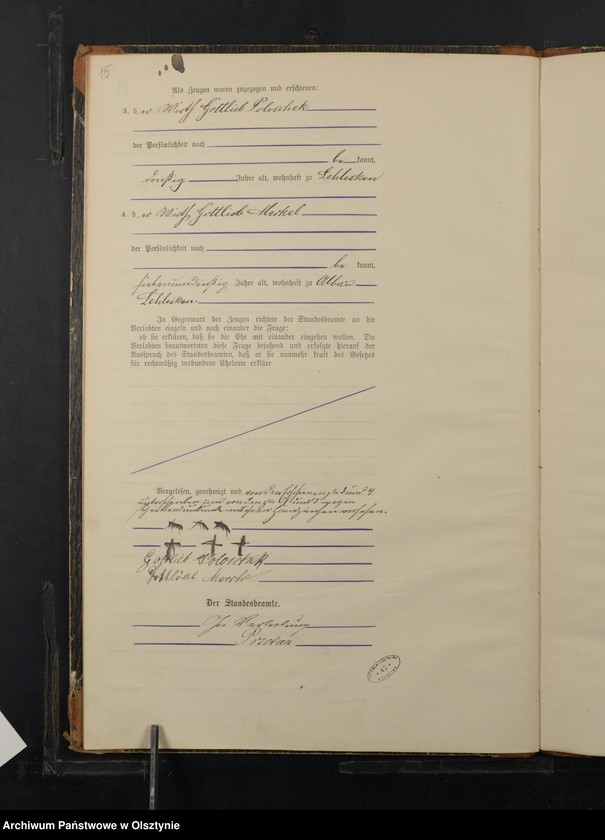 15
Als Zeugen waren zugezogen und erschienen:
3. der Wirth Gottlieb
der Persönlichkeit nach
be kannt,
dreißig Jahre alt, wohnhaft zu Lehlesken
4. der Wirth Gottlieb Merkel
der Persönlichkeit nach
be kannt,
siebenunddreißig Jahre alt, wohnhaft zu Abbau
Lehlesken.
In Gegenwart der Zeugen richtete der Standesbeamte an die
Verlobten einzeln und nach einander die Frage:
ob sie erklären, daß sie die Ehe mit einander eingehen wollen. Die
Verlobten beantworteten diese Frage bejahend und erfolgte hierauf der
Ausspruch des Standesbeamten, daß er sie nunmehr kraft des Gesetzes
für rechtmäßig verbundene Eheleute erkläre.
Vorgelesen, genehmigt und von den Erschienenen 3 und 4
unterschrieben und von den zu 1 und 2 wegen
versehen.
+ + +
Gottlieb
Gottlieb
Der Standesbeamte.
In Vertretung
Archiwum Państwowe w Olsztynie